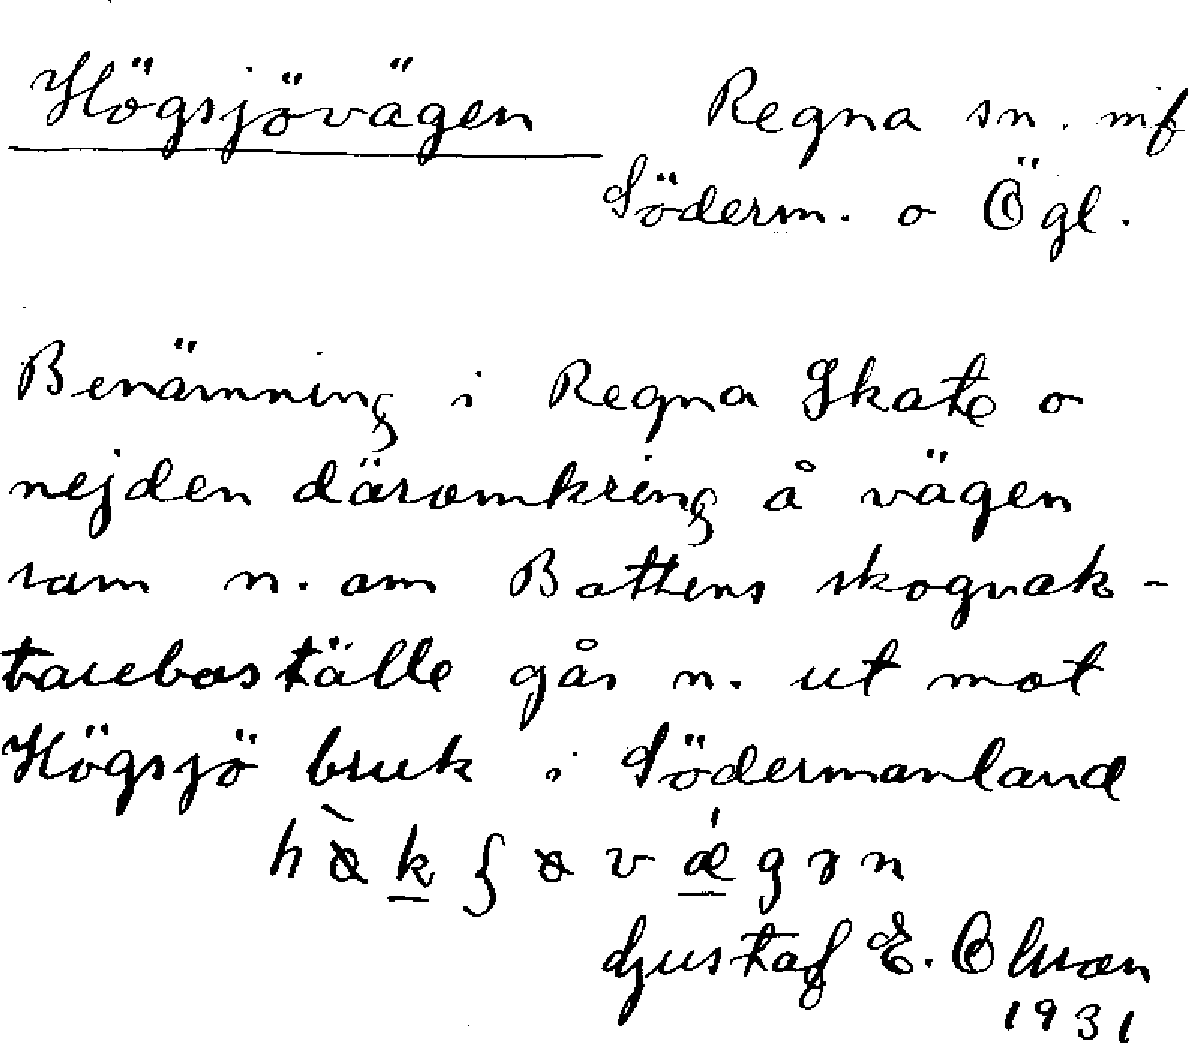 Högsjövägen Regna sn. mf
Söderm. o Ögl.
Benämning i Regna Skate o
nejden däromkring å vägen
som n. om Bottens skogvak-
tareboställe går n. ut mot
Högsjö bruk i Södermanland
Gustaf E. Olsson
1931